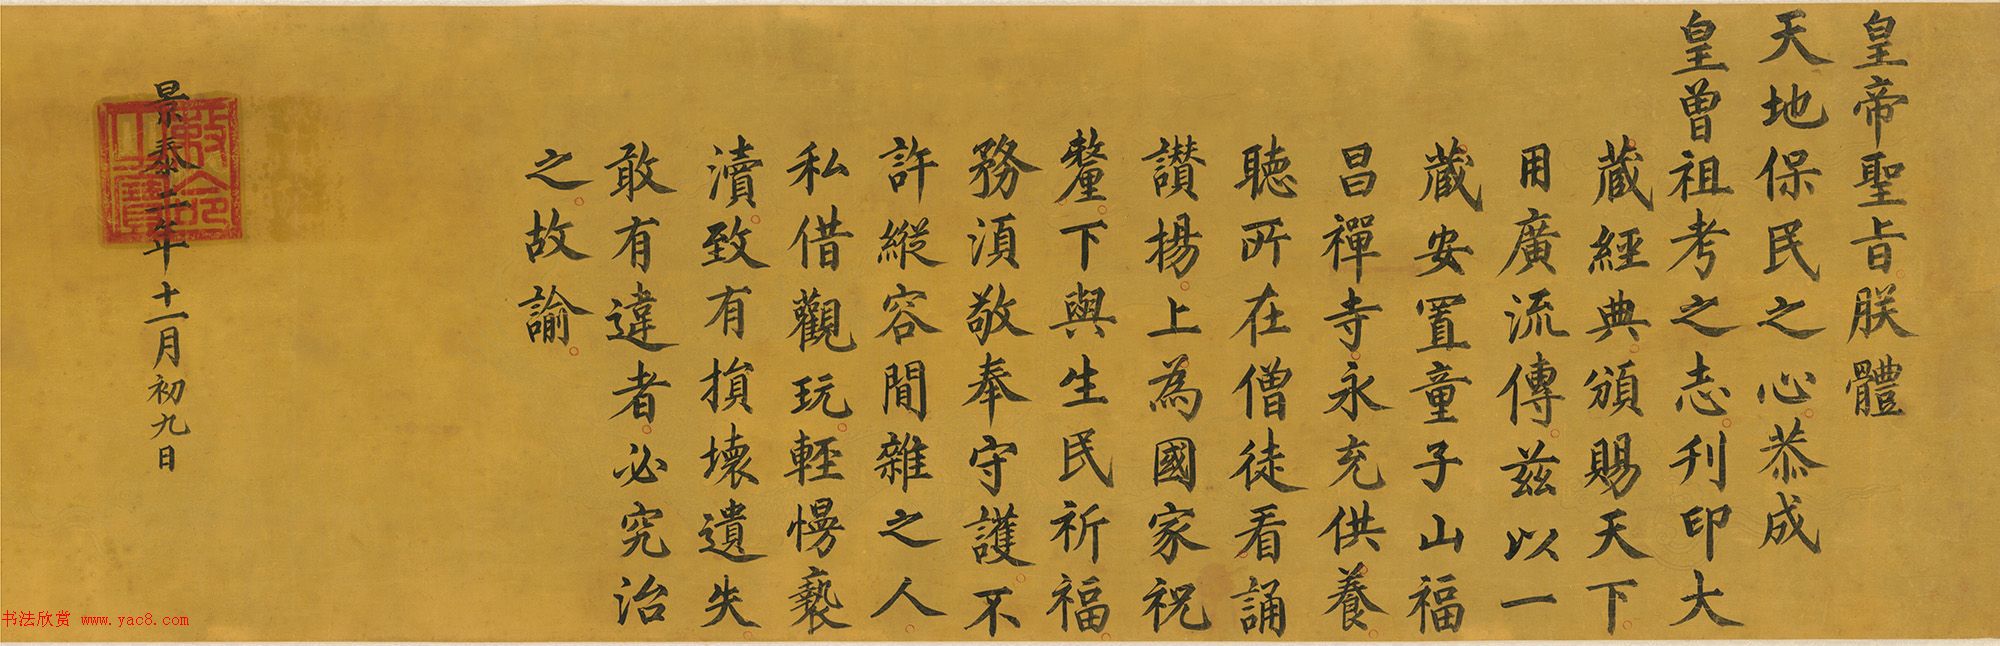 皇帝聖旨朕體
天地保民之心恭成
皇曾祖考之志刊印大
藏經典頒賜天下
用廣流傳茲以一
藏安置童子山福
昌禪寺永充供養
聽所在僧徒看誦
讃揚上為國家祝
釐下與生民祈福
務須敬奉守護不
許縱容閒雜之人
私借觀玩輕慢褻
瀆致有損壞遺失
敢有違者必究治
之故諭
景泰二年十一月初九日
敕命之寶
书法欣赏 www.yac8.com